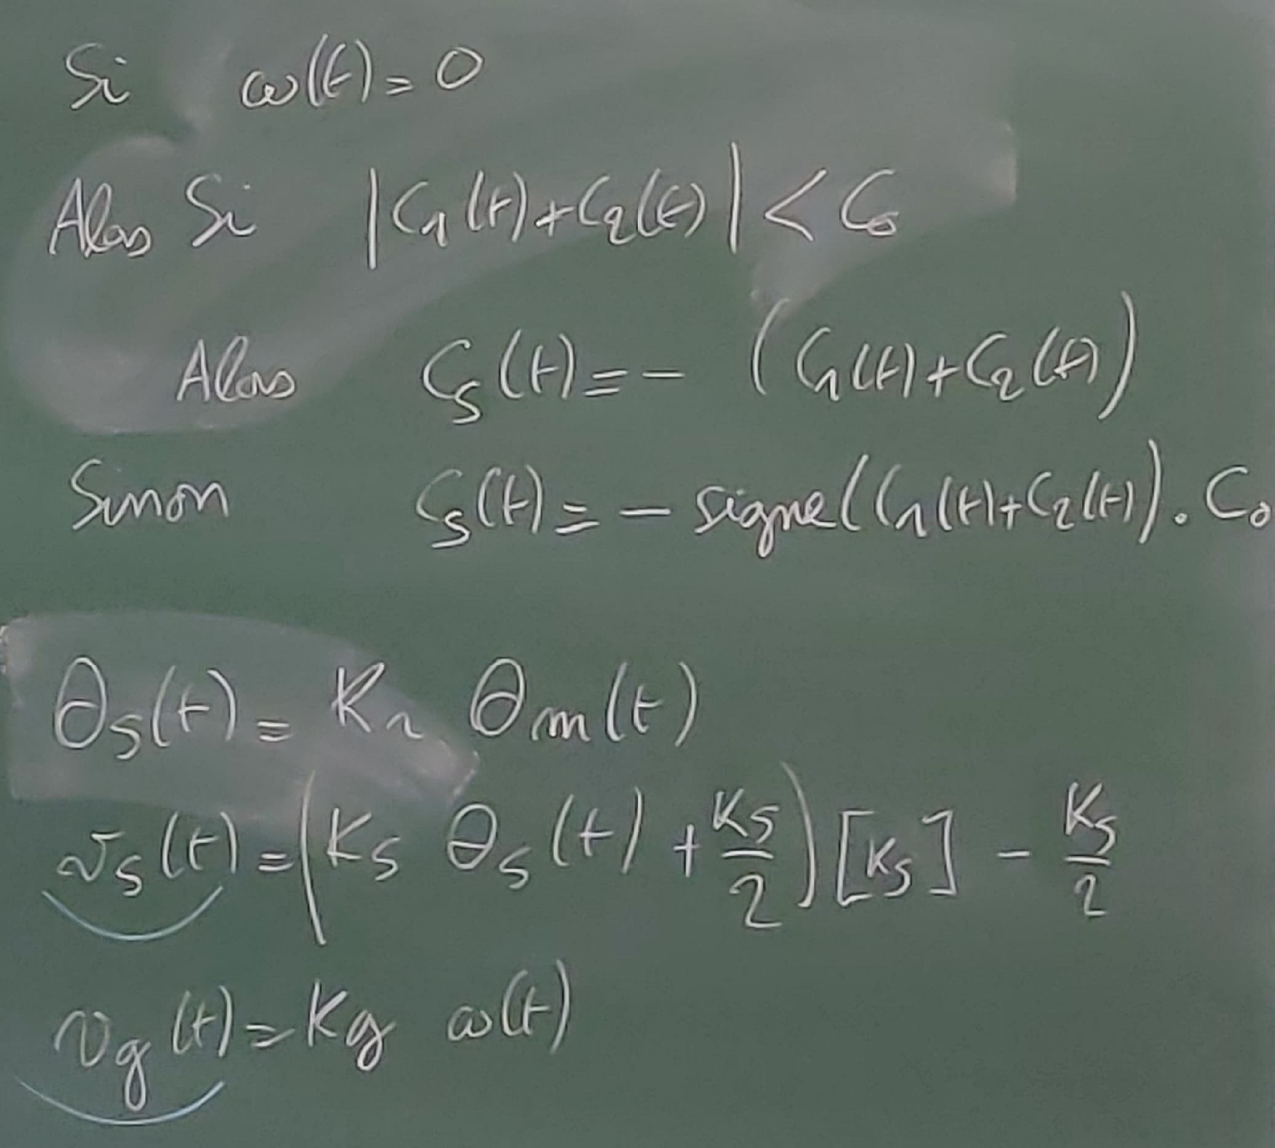 Si ω(t) = 0
Alors Si |C₁(t) + C₂(t)| < C₀
Alors Cₛ(t) = - (C₁(t) + C₂(t))
Sinon Cₛ(t) = - signe(C₁(t) + C₂(t)) . C₀
θₛ(t) = Kᵣ θm(t)
vₛ(t) = (Kₛ θₛ(t) + Kₛ/2) [Kₛ] - Kₛ/2
v_g(t) = Kg ω(t)